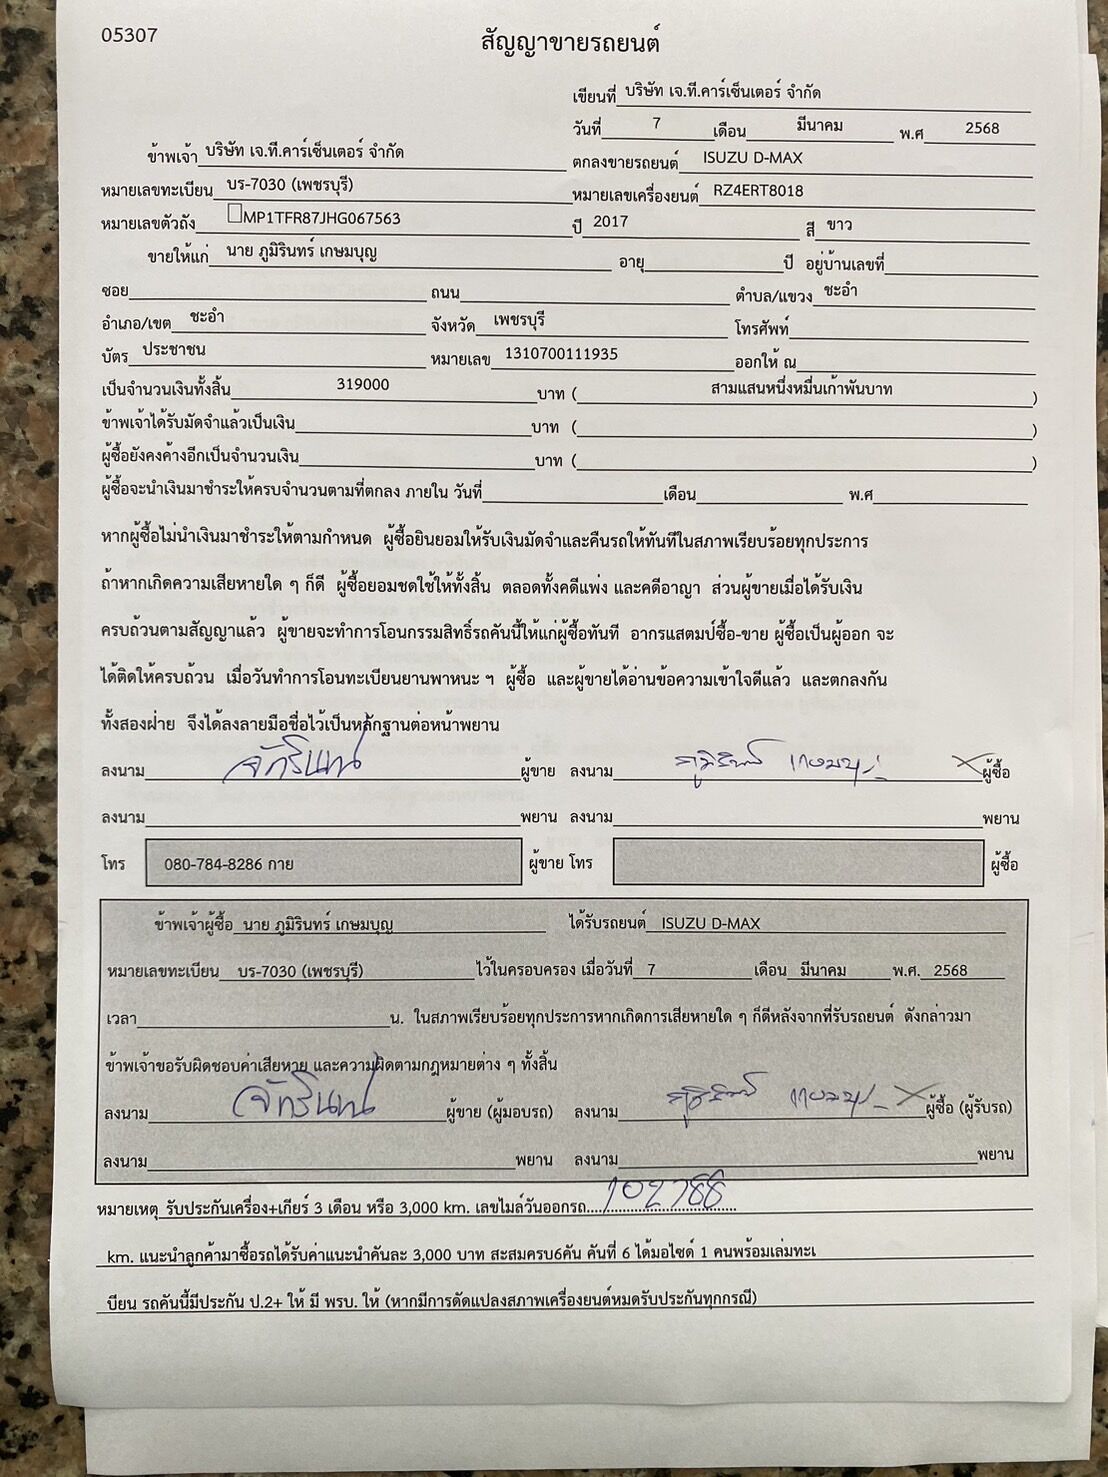 05307
สัญญาขายรถยนต์
เขียนที่ บริษัท เจ.ที.คาร์เซ็นเตอร์ จำกัด
วันที่ 7 เดือน มีนาคม พ.ศ 2568
ข้าพเจ้า บริษัท เจ.ที.คาร์เซ็นเตอร์ จำกัด ตกลงขายรถยนต์ ISUZU D-MAX
หมายเลขทะเบียน บร-7030 (เพชรบุรี) หมายเลขเครื่องยนต์ RZ4ERT8018
หมายเลขตัวถัง MP1TFR87JHG067563 ปี 2017 สี ขาว
ขายให้แก่ นาย ภูมิรินทร์ เกษมบุญ อายุ ปี อยู่บ้านเลขที่
ซอย ถนน ตำบล/แขวง ชะอำ
อำเภอ/เขต ชะอำ จังหวัด เพชรบุรี โทรศัพท์
บัตร ประชาชน หมายเลข 1310700111935 ออกให้ ณ
เป็นจำนวนเงินทั้งสิ้น 319000 บาท ( สามแสนหนึ่งหมื่นเก้าพันบาท )
ข้าพเจ้าได้รับมัดจำแล้วเป็นเงิน บาท ( )
ผู้ซื้อยังคงค้างอีกเป็นจำนวนเงิน บาท ( )
ผู้ซื้อจะนำเงินมาชำระให้ครบจำนวนตามที่ตกลง ภายใน วันที่ เดือน พ.ศ
หากผู้ซื้อไม่นำเงินมาชำระให้ตามกำหนด ผู้ซื้อยินยอมให้รับเงินมัดจำและคืนรถให้ทันทีในสภาพเรียบร้อยทุกประการ
ถ้าหากเกิดความเสียหายใด ๆ ก็ดี ผู้ซื้อยอมชดใช้ให้ทั้งสิ้น ตลอดทั้งคดีแพ่ง และคดีอาญา ส่วนผู้ขายเมื่อได้รับเงิน
ครบถ้วนตามสัญญาแล้ว ผู้ขายจะทำการโอนกรรมสิทธิ์รถคันนี้ให้แก่ผู้ซื้อทันที อากรแสตมป์ซื้อ-ขาย ผู้ซื้อเป็นผู้ออก จะ
ได้ติดให้ครบถ้วน เมื่อวันทำการโอนทะเบียนยานพาหนะ ฯ ผู้ซื้อ และผู้ขายได้อ่านข้อความเข้าใจดีแล้ว และตกลงกัน
ทั้งสองฝ่าย จึงได้ลงลายมือชื่อไว้เป็นหลักฐานตอหน้าพยาน
ลงนาม จักรินทน์ ผู้ขาย ลงนาม ภูมิรินทร์ เกษมบุญ ผู้ซื้อ
ลงนาม พยาน ลงนาม พยาน
โทร 080-784-8286 กาย ผู้ขาย โทร ผู้ซื้อ
ข้าพเจ้าผู้ซื้อ นาย ภูมิรินทร์ เกษมบุญ ได้รับรถยนต์ ISUZU D-MAX
หมายเลขทะเบียน บร-7030 (เพชรบุรี) ไว้ในครอบครอง เมื่อวันที่ 7 เดือน มีนาคม พ.ศ. 2568
เวลา น. ในสภาพเรียบร้อยทุกประการหากเกิดการเสียหายใด ๆ ก็ดีหลังจากที่รับรถยนต์ ดังกล่าวมา
ข้าพเจ้าขอรับผิดชอบค่าเสียหาย และความผิดตามกฎหมายต่าง ๆ ทั้งสิ้น
ลงนาม จักรินทน์ ผู้ขาย (ผู้มอบรถ) ลงนาม ภูมิรินทร์ เกษมบุญ ผู้ซื้อ (ผู้รับรถ)
ลงนาม พยาน ลงนาม พยาน
หมายเหตุ รับประกันเครื่อง+เกียร์ 3 เดือน หรือ 3,000 km. เลขไมล์วันออกรถ....102788
km. แนะนำลูกค้ามาซื้อรถได้รับค่าแนะนำคันละ 3,000 บาท สะสมครบ6คัน คันที่ 6 ได้มอไซด์ 1 คนพร้อมเล่มทะเ
บียน รถคันนี้มีประกัน ป.2+ ให้ มี พรบ. ให้ (หากมีการดัดแปลงสภาพเครื่องยนต์หมดรับประกันทุกกรณี)